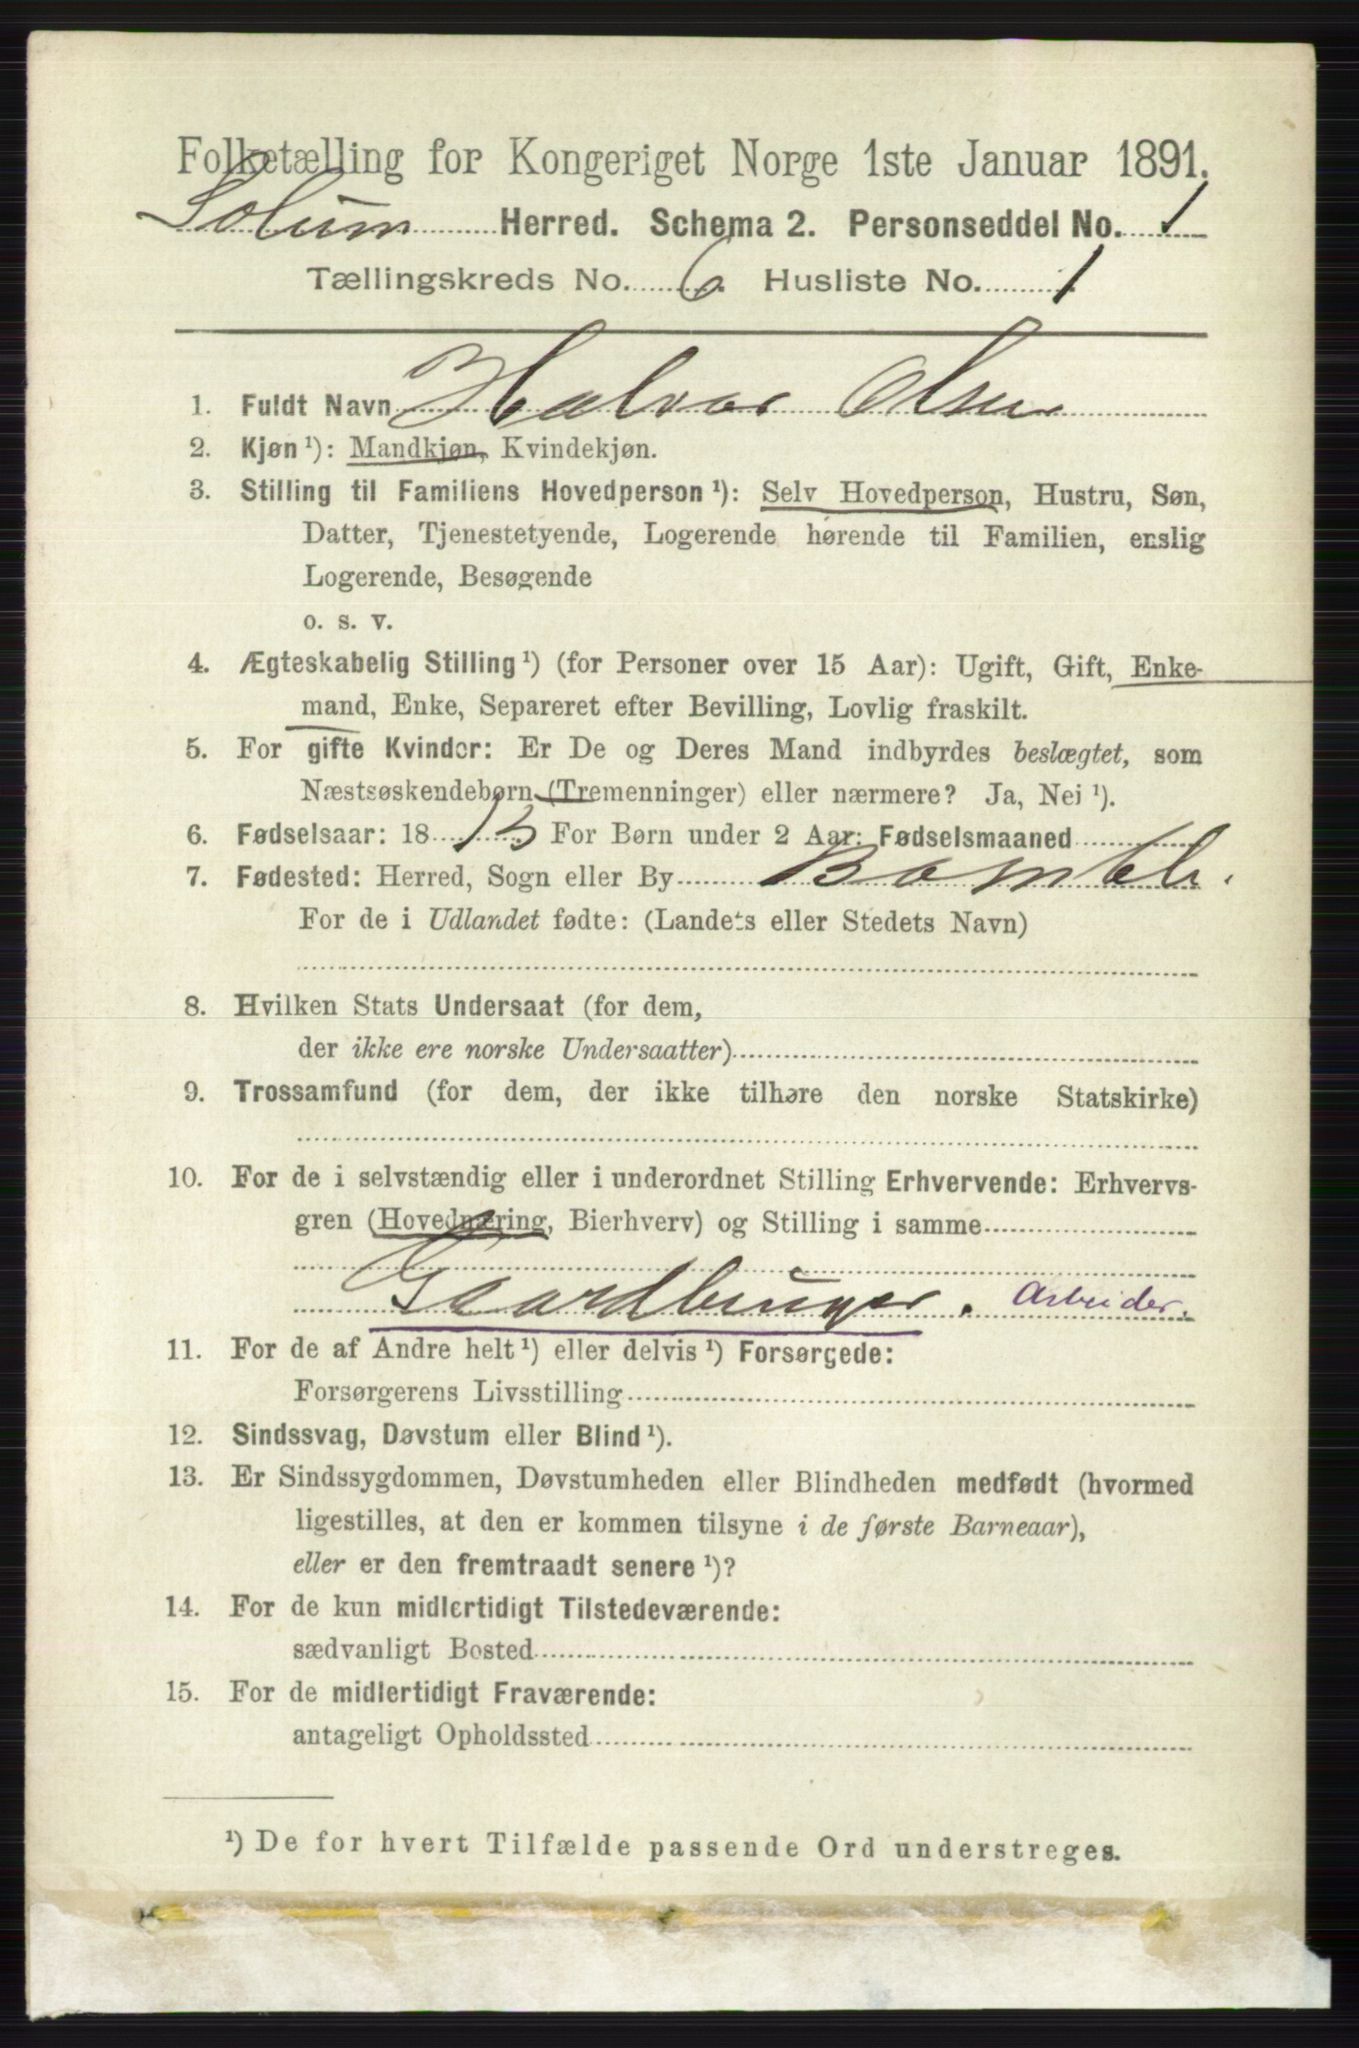 Folketælling for Kongeriget Norge 1ste Januar 1891.
Solum Herred. Schema 2. Personseddel No. 1
Tællingskreds No. 6. Husliste No. 1
1. Fuldt Navn Halvor Olsen
2. Kjøn ¹): Mandkjøn, Kvindekjøn.
3. Stilling til Familiens Hovedperson ¹): Selv Hovedperson, Hustru, Søn,
Datter, Tjenestetyende, Logerende hørende til Familien, enslig
Logerende, Besøgende
o. s. v.
4. Ægteskabelig Stilling ¹) (for Personer over 15 Aar): Ugift, Gift, Enke-
mand, Enke, Separeret efter Bevilling, Lovlig fraskilt.
5. For gifte Kvinder: Er De og Deres Mand indbyrdes beslægtet, som
Næstsøskendebørn (Tremenninger) eller nærmere? Ja, Nei ¹).
6. Fødselsaar: 18 13 For Børn under 2 Aar: Fødselsmaaned
7. Fødested: Herred, Sogn eller By Bamble.
For de i Udlandet fødte: (Landets eller Stedets Navn)
8. Hvilken Stats Undersaat (for dem,
der ikke ere norske Undersaatter)
9. Trossamfund (for dem, der ikke tilhøre den norske Statskirke)
10. For de i selvstændig eller i underordnet Stilling Erhvervende: Erhvervs-
gren (Hovednæring, Bierhverv) og Stilling i samme
Gaardbruger. Arbeider.
11. For de af Andre helt ¹) eller delvis ¹) Forsørgede:
Forsørgerens Livsstilling
12. Sindssvag, Døvstum eller Blind ¹).
13. Er Sindssygdommen, Døvstumheden eller Blindheden medfødt (hvormed
ligestilles, at den er kommen tilsyne i de første Barneaar),
eller er den fremtraadt senere ¹)?
14. For de kun midlertidigt Tilstedeværende:
sædvanligt Bosted
15. For de midlertidigt Fraværende:
antageligt Opholdssted
¹) De for hvert Tilfælde passende Ord understreges.